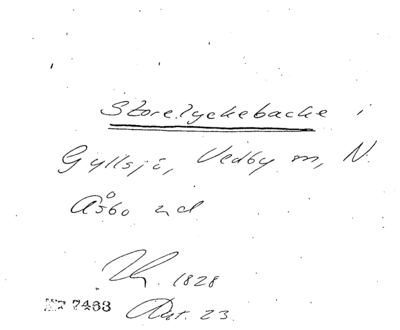 Storelyckebacke i
Gyllsjö, Vedby sn, N.
Åsbo hd
1828
7463 Akt. 23.